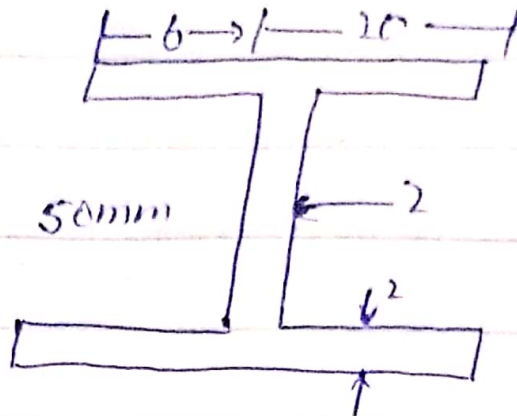 6 20
50mm
2
2